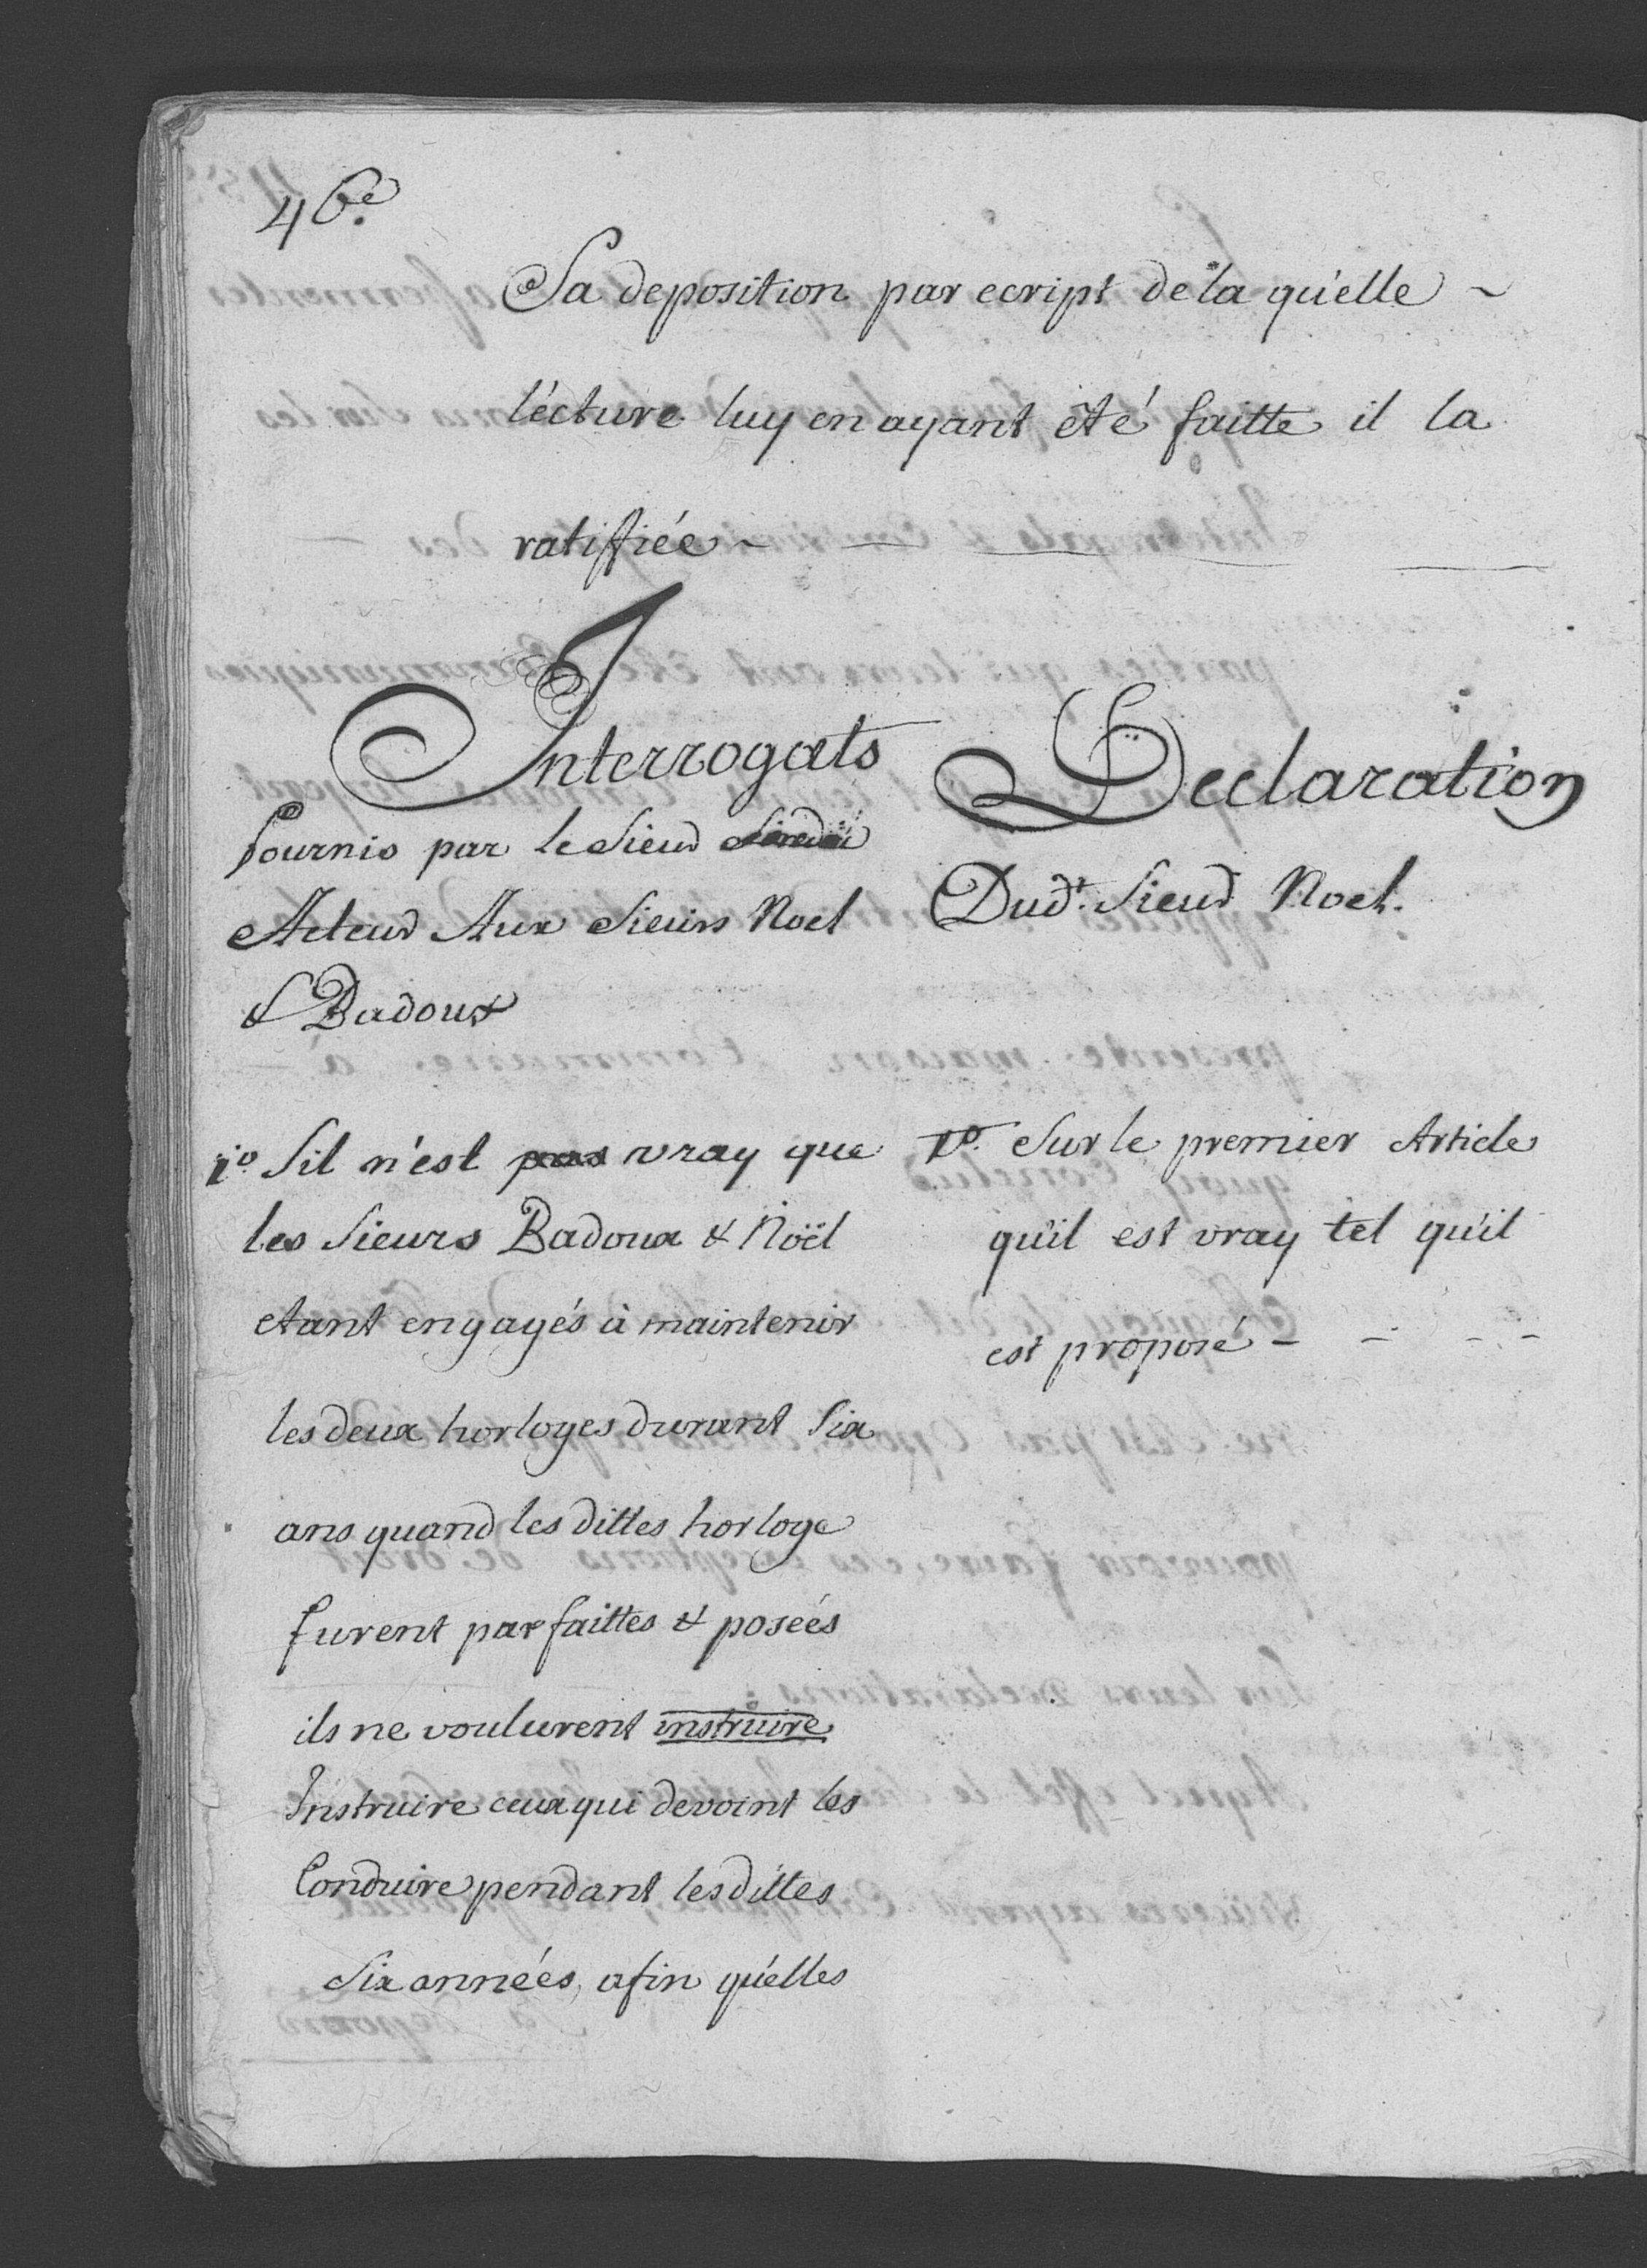 46e.
Sa deposition par ecript de la qu'elle ~
lécture luy en ayant été faitte il la
ratiffiée ~ — — —
Interrogats
fournis par le Sieur
Acteur Aux Sieurs Noel
& Badoux
1o. Sil n'est pas vray que
les Sieurs Badoux & Noël
etant engagés à maintenir
les deux horloges durant Six
ans quand les dittes horloge
furent parfaittes & poseés
ils ne voulurent instruire
Instruire ceux qui devoint les
Conduire pendant les dittes
Six anneés, afin qu'elles
Declaration
Dud.t Sieur Noel.
1o. Sur le premier Article
qu'il est vray tel qu'il
est proposé - - - -